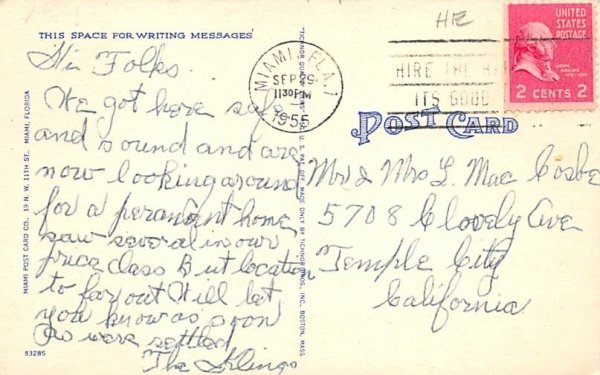 THIS SPACE FOR WRITING MESSAGES
Hi Folks.
We got here safe
and sound and are
now looking around
for a peranant home
saw several in our
price class But location
to far out Will let
you know as soon
As were settled
The Slings
83285
MIAMI POST CARD CO., 19 N. W. 11TH ST., MIAMI, FLORIDA
MADE ONLY BY TICHNOR BROS., INC., BOSTON, MASS.
HE
MIAMI, FLA. 1
SEP 29
11 30 PM
1955
HIRE THE
ITS GOOD
UNITED
STATES
POSTAGE
JOHN
ADAMS
2 CENTS 2
POST CARD
Mr & Mrs L. Mac Cosbe
5708 Clovely Ave
Temple City
California